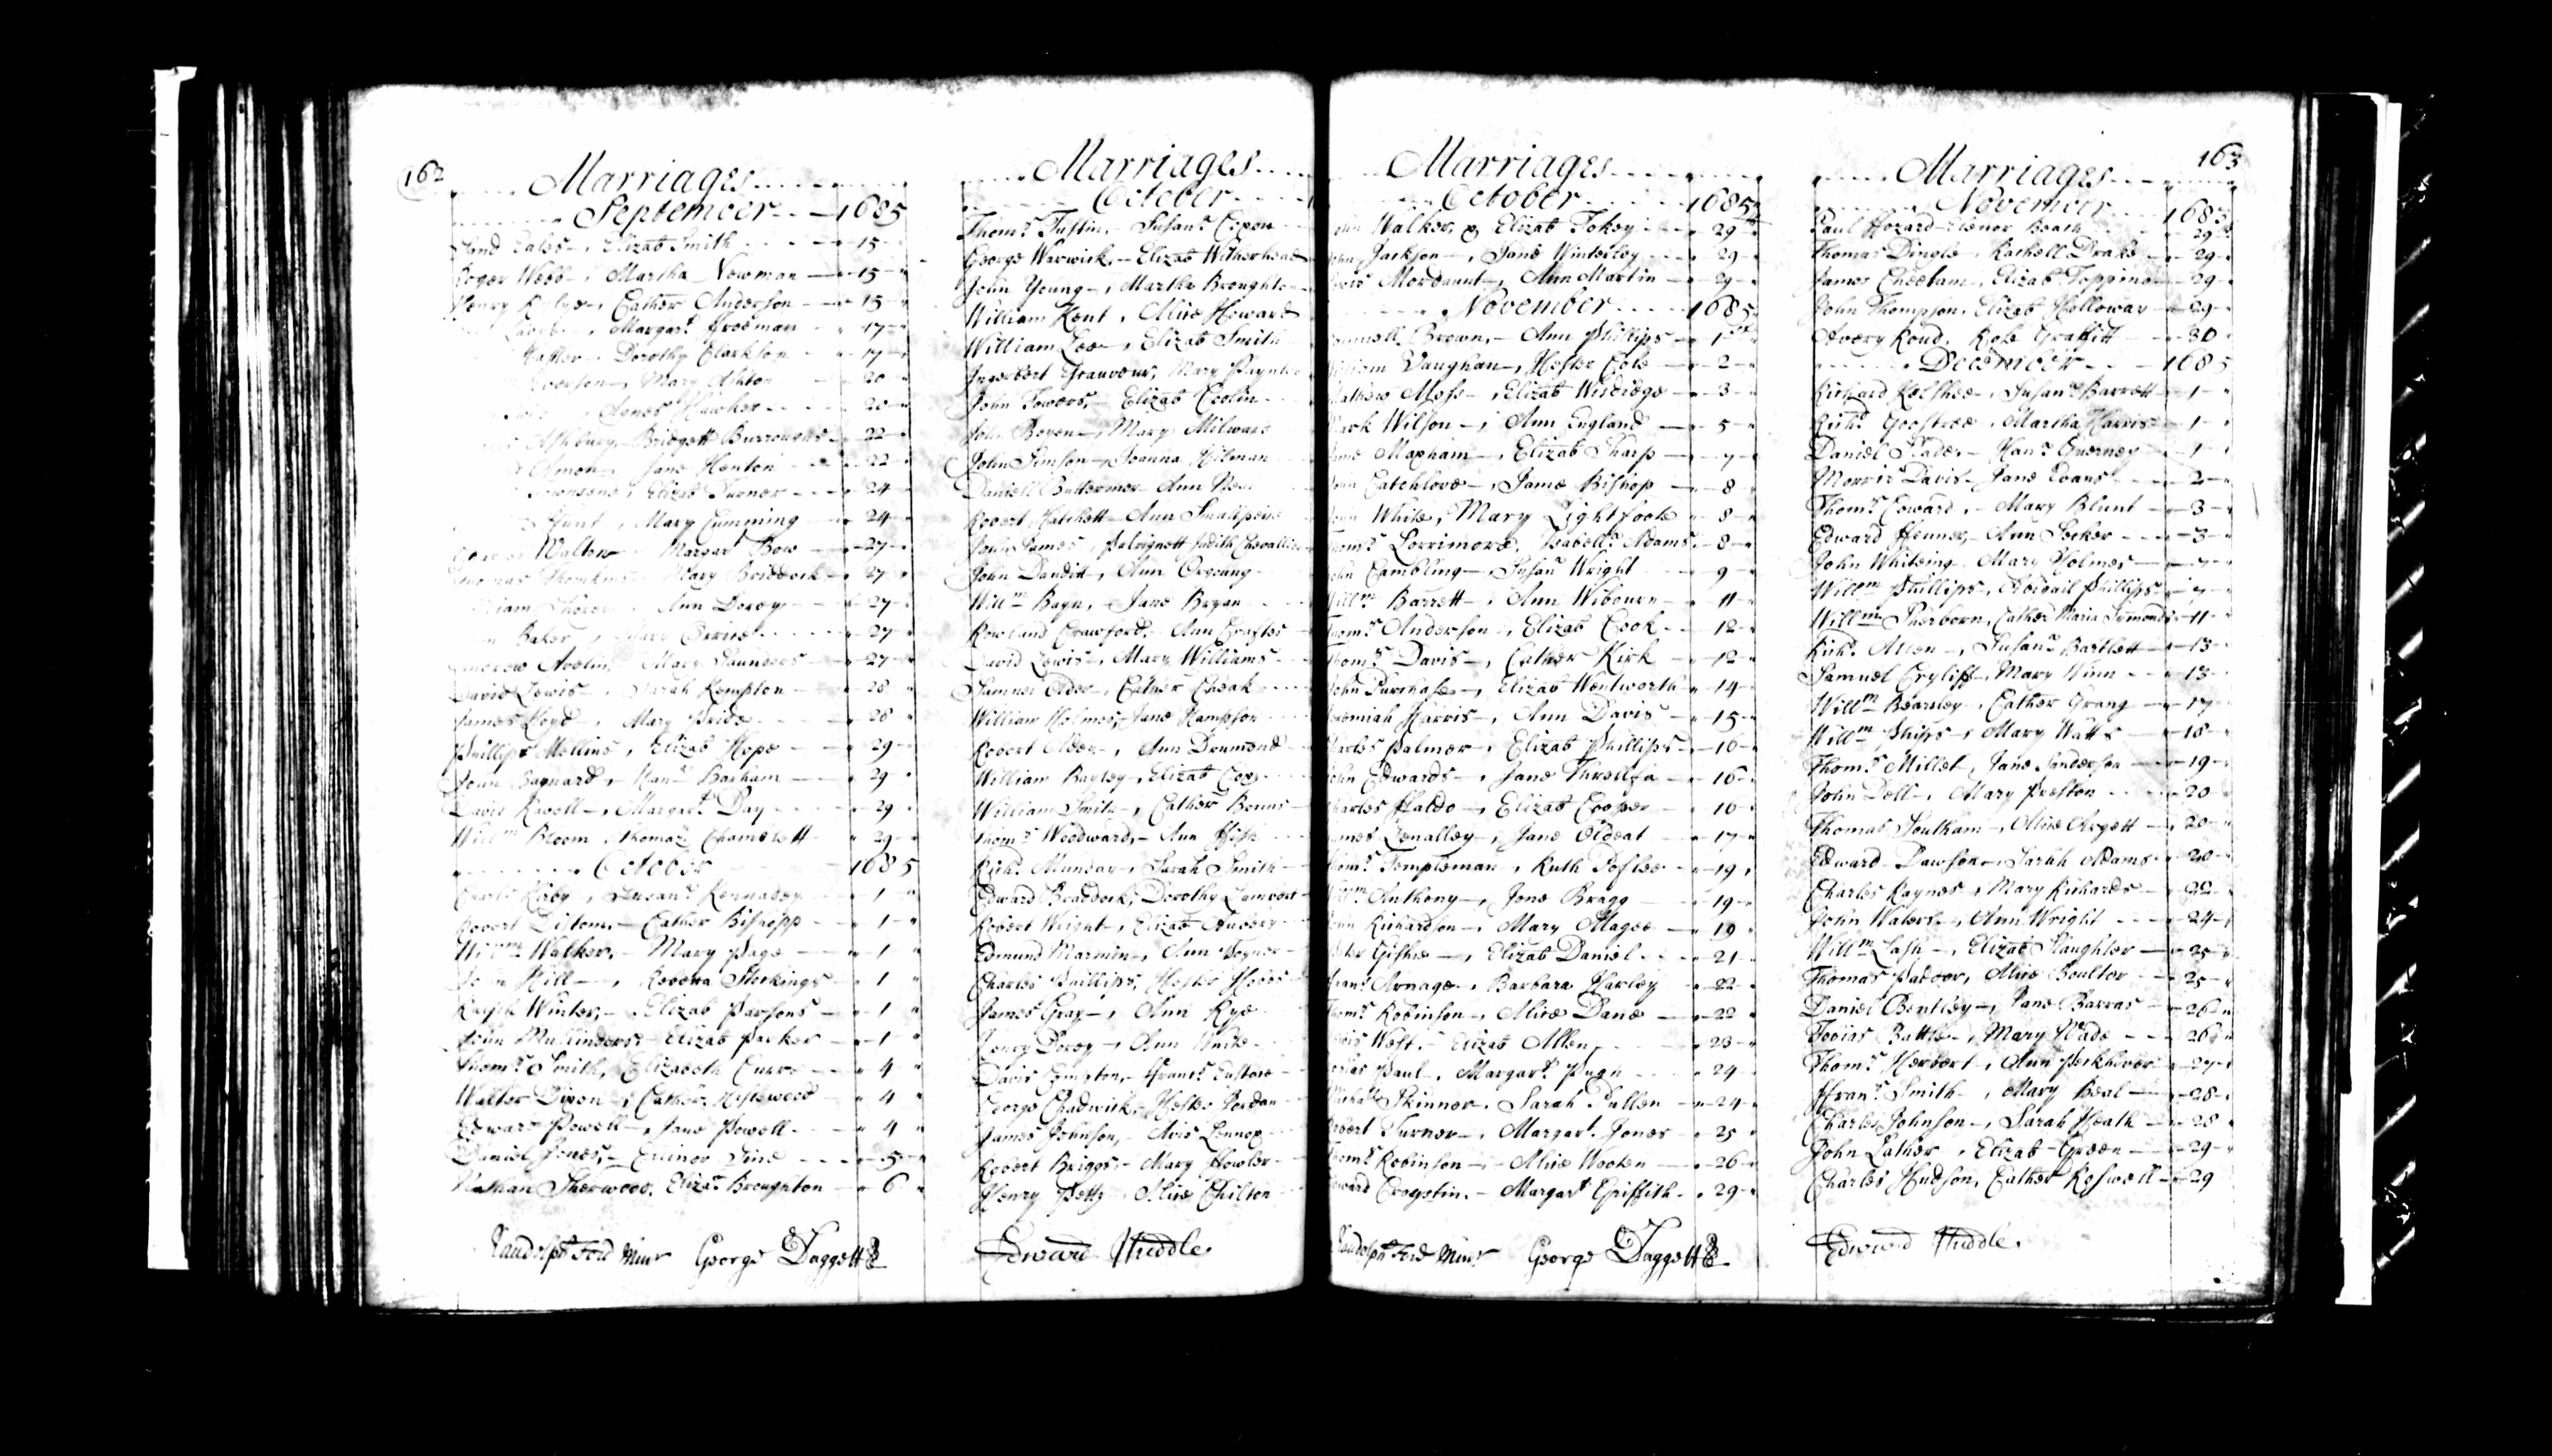 162
Marriages
September 1685
Eales, Elizab Smith 15
Roger Webb, Martha Newman 15
Henry, Cather Anderson 15
Margart. ffreeman 17
Dorothy Clarkson 17
Mary Ashton 20
Agnes Hawker 20
Ashbury, Bridgett Burroughs 22
Jane Henton 22
Townsend, Elizab Turner 24
Hunt, Mary Cumming 24
Walton Margart Bow 27
Thomas Thomkins Mary Braddock 27
Ann Dorey 27
Baker, Mary 27
Andrew Avelin Mary Saunders 27
David Lewis, Sarah Kempton 28
James Loyd, Mary Pride 28
Phillip Mellins, Elizab Hope 29
John Baynard, Hanh Barham 29
David Ravell, Margart. Day 29
Willm Bloom, 29
October 1685
Kirby, Susans Kennadey 1
Robert, Cather Bishopp 1
Willm Walker, Mary Page 1
John Hill, Stockings 1
Ralph Winter, Elizab Parsons 1
John Mullinders, Elizab Parker 1
Thoms Smith, Elizabeth 4
Walter Dixon, Cather 4
Edward Powell, Jane Powell 4
Daniel Jones, Ellinor 5
Nathan Sherwood, Eliza Broughton 6
Randolph Ford Minr George Daggett
Marriages
October
Thoms Tustin, Susans
George Warwick, Elizab Witherhead
John Young, Martha Broughton
William Kent, Alice Howard
William Lee, Elizab Smith
Mary Paynter
John Towers, Elizab Codlin
John Boven, Mary Milward
John Simson, Joanna Hilman
Daniell Buttermor Ann
Robert Hatchett Ann Smallpeice
John James Judith Chevallier
John Danditt, Ann
Willm Bayn, Jane Bryan
Rowland Crawford, Ann Craftes
David Lewis, Mary Williams
Samuel Older, Cather Cheak
William Holmes, Jane Hampson
Robert Older, Ann Drumond
William Bayley, Elizab Cox
William Smith, Cather Bonus
Thoms Woodward, Ann ffish
Richd. Munday, Sarah Smith
Edward Braddock, Dorothy Lambert
Robert Wright, Elizab
Edmund Marmin, Ann Joyner
Charles Phillips, Hester
James Gray, Ann Rye
Henry Dorey, Ann
David Compton, ffrans
George Chadwick, Hester Jordan
James Johnson, Avis Lennox
Robert Briggs, Mary ffowler
Henry Petty, Alice Chilton
Edward Huddle
Marriages
October 1685
Walker, & Elizab Tokey 29
Jackson, Jane Winterley 29
Mordaunt, Ann Martin 29
November 1685
Brown, Ann Phillips 1st
Vaughan, Hester Cole 2
Mathew Moss, Elizab 3
Wilson, Ann England 5
Mapham, Elizab Sharp 7
Catchlove, Jane Bishop 8
White, Mary Lightfoote 8
Thoms Lorrimore, Isabells Adams 8
John Cambling, Susan Wright 9
Willm Barrett, Ann Wibourn 11
Thoms Anderson, Elizab Cook 12
Thoms Davis, Cather Kirk 12
John Purchase, Elizab Wentworth 14
Jeremiah Harris, Ann Davis 15
Charles Palmer, Elizab Phillips 16
John Edwards, Jane 16
Charles ffaldo, Elizab Cooper 16
James Lenalley, Jane Oldeat 17
Thoms Templeman, Ruth Jostee 19
Willm Anthony, Jone Bragg 19
Richardson, Mary Magee 19
Elizab Daniel 21
Arnage, Barbara Harley 22
Thoms Robinson, Alice Dane 22
West, Elizab Allen 23
Paul, Margart. Pugh 24
Skinner, Sarah Pullen 24
Robert Turner, Margart. Jones 25
Thoms Robinson, Alice Wooten 26
Edward, Margart Griffith 29
Randolph Ford Minr George Daggett
163
Marriages
November 1685
Paul Hozard Elenor 29
Thomas Dingle, Rachell Drake 29
James Cheetam, Elizab Topping 29
John Thompson, Elizab Holloway 29
Avery Roud, Rose Graffitt 30
December 1685
Richard, Susans Barrett 1
Richd. Goostree, Martha Harris 1
Daniel Slade, Hans Guerney 1
Morris Davis, Jane Evans 2
Thoms Coward, Mary Blunt 3
Edward ffenner, Ann Secker 3
John Whiteing, Mary Holmes 7
Willm Phillips, Abigail Phillips 7
Willm Sherborn, Cather Maria Symonds 11
Richd. Allen, Susans Bartlett 13
Samuel Cryliff, Mary Winn 13
Willm Bearsley, Cather Grang 17
Willm Phips, Mary Watts 18
Thoms Millet, Jane Sanderson 19
John Dell, Mary Preston 20
Thomas Southam, Alice Argett 20
Edward Dawson, Sarah Adams 20
Charles Raynes, Mary Richards 22
John Waters, Ann Wright 24
Willm Lash, Elizab Slaughter 25
Thomas, Alice Boulter 25
Daniel Bentley, Jane Barras 26
Tobias Battle, Mary Wade 26
Thoms Herbert, Ann 27
ffrans Smith, Mary Beal 28
Charles Johnson, Sarah Heath 28
John Lather, Elizab Green 29
Charles Hudson, Cather Roswell 29
Edward Huddle